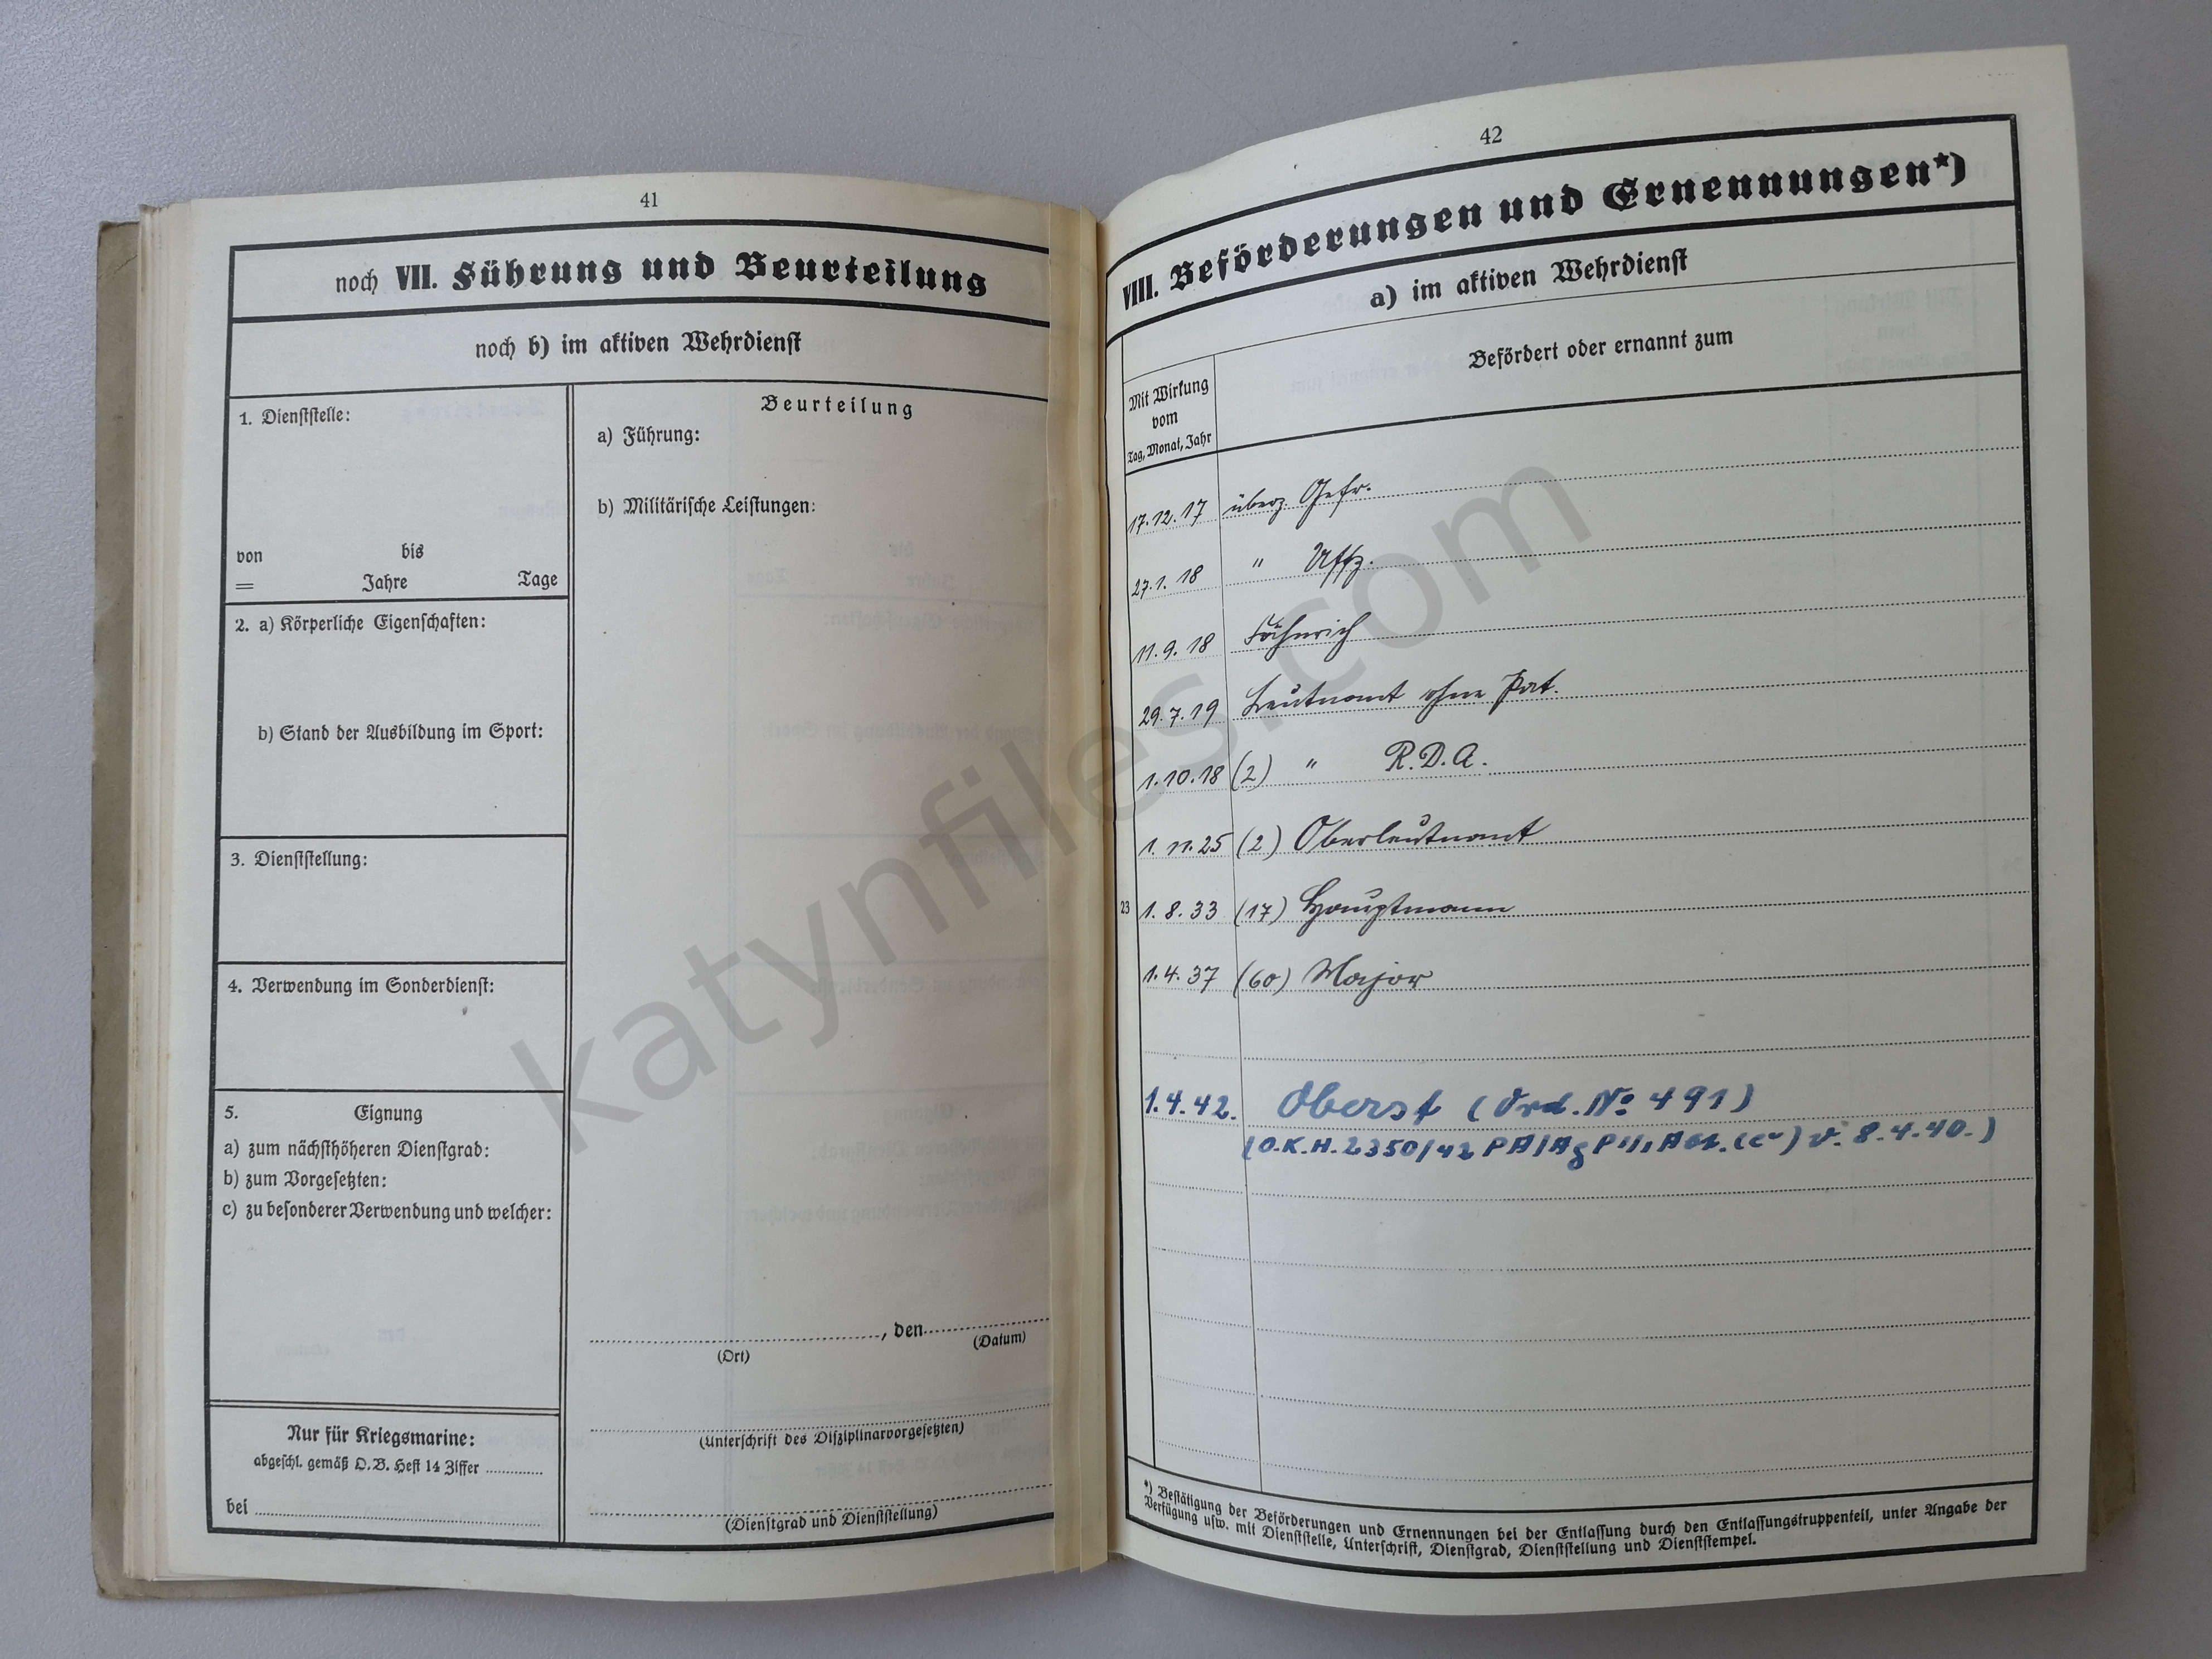 41
noch VII. Führung und Beurteilung
noch b) im aktiven Wehrdienst
1. Dienststelle:
von bis
= Jahre Tage
2. a) Körperliche Eigenschaften:
b) Stand der Ausbildung im Sport:
3. Dienststellung:
4. Verwendung im Sonderdienst:
5. Eignung
a) zum nächsthöheren Dienstgrad:
b) zum Vorgesetzten:
c) zu besonderer Verwendung und welcher:
Nur für Kriegsmarine:
abgeschl. gemäß O.B. Heft 14 Ziffer
bei
Beurteilung
a) Führung:
b) Militärische Leistungen:
, den
(Ort) (Datum)
(Unterschrift des Disziplinarvorgesetzten)
(Dienstgrad und Dienststellung)
42
VIII. Beförderungen und Ernennungen*)
a) im aktiven Wehrdienst
Mit Wirkung
vom
Tag, Monat, Jahr
Befördert oder ernannt zum
17.12.17 überz. Gefr.
27.1.18 " Uffz.
11.9.18 Fähnrich
29.7.19 Leutnant ohne Pat.
1.10.18 (2) " R.D.A.
1.11.25 (2) Oberleutnant
23 1.8.33 (17) Hauptmann
1.4.37 (60) Major
1.4.42. Oberst (Ord. No 491)
(O.K.H. 2350/42 PA/Ag P 1/1. v. 8.4.40.)
*) Bestätigung der Beförderungen und Ernennungen bei der Entlassung durch den Entlassungstruppenteil, unter Angabe der
Verfügung usw. mit Dienststelle, Unterschrift, Dienstgrad, Dienststellung und Dienststempel.
katynfiles.com